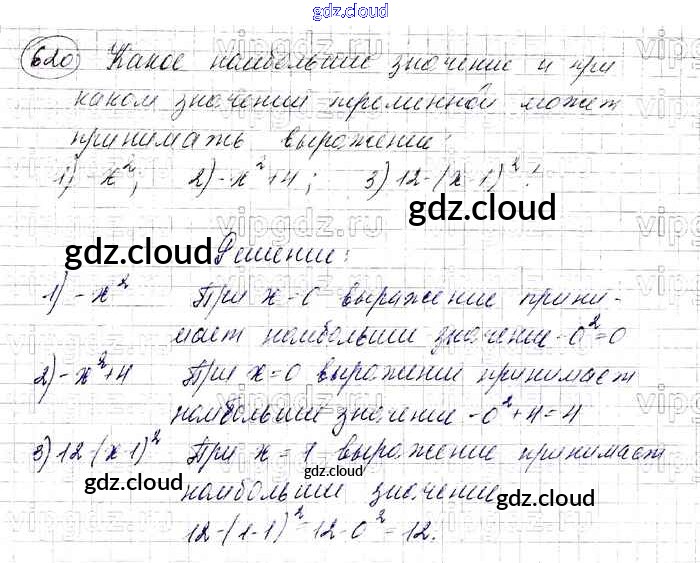 gdz.cloud
620. Какое наибольшие значение и при
каком значении переменной может
принимать выражение:
1) -x²; 2) -x²+4; 3) 12-(x-1)²?
gdz.cloud
gdz.cloud
Решение:
1) -x² При x=0 выражение прини-
мает наибольшие значение -0²=0
2) -x²+4 При x=0 выражение принимает
наибольшие значение -0²+4=4
3) 12-(x-1)² При x=1 выражение принимает
gdz.cloud
gdz.cloud
наибольшие значение
gdz.cloud
12-(1-1)²=12-0²=12.